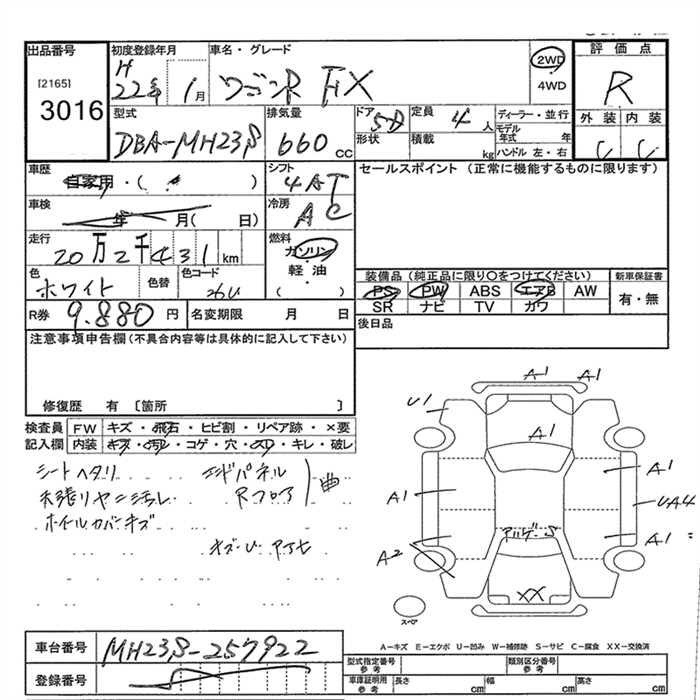 出品番号
[2165]
3016
初度登録年月
H
22年 1月
車名・グレード
ワゴンR FX
2WD
4WD
評価点
R
外装 内装
C C
型式
DBA-MH23S
排気量
660 cc
ドア 5D
形状
定員 4 人
積載 kg
ディーラー・並行
モデル年式 年
ハンドル 左・右
車歴
自家用・( )
シフト
4AT
セールスポイント (正常に機能するものに限ります)
車検
年 月( 日)
冷房
AC
走行
20万2千431km
燃料
ガソリン
軽油
( )
色
ホワイト
色替
色コード
26U
装備品(純正品に限り○をつけてください)
PS PW ABS エアB AW
SR ナビ TV カワ
新車保証書
有・無
R券 9.880円
名変期限 月 日
後日品
注意事項申告欄(不具合内容等は具体的に記入して下さい)
修復歴 有 〔箇所 〕
検査員 FW キズ・飛石・ヒビ割・リペア跡・×要
記入欄 内装 キズ・汚レ・コゲ・穴・スレ・キレ・破レ
シートヘタリ
天張リヤニ汚レ
ホイルカバーキズ
エンドパネル
Rフロア
曲
キズ・U アリ
A1 A1
U1
A1
A1 A1
UA4
A1
A2
S
XX
スペア
A-キズ E-エクボ U-凹み W-補修跡 S-サビ C-腐食 XX-交換済
車台番号 MH23S-257922
登録番号
型式指定番号 参考
類別区分番号 参考
車庫証明用 参考
長さ cm 幅 cm 高さ cm